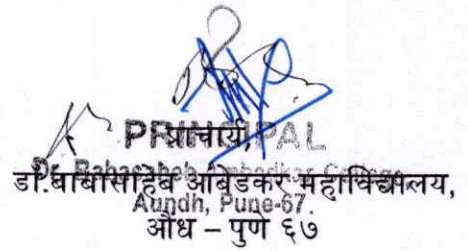 PRINCIPAL
प्राचार्य,
Dr. Babasaheb Ambedkar College
डॉ.बाबासाहेब आंबेडकर महाविद्यालय,
Aundh, Pune-67.
औंध – पुणे ६७